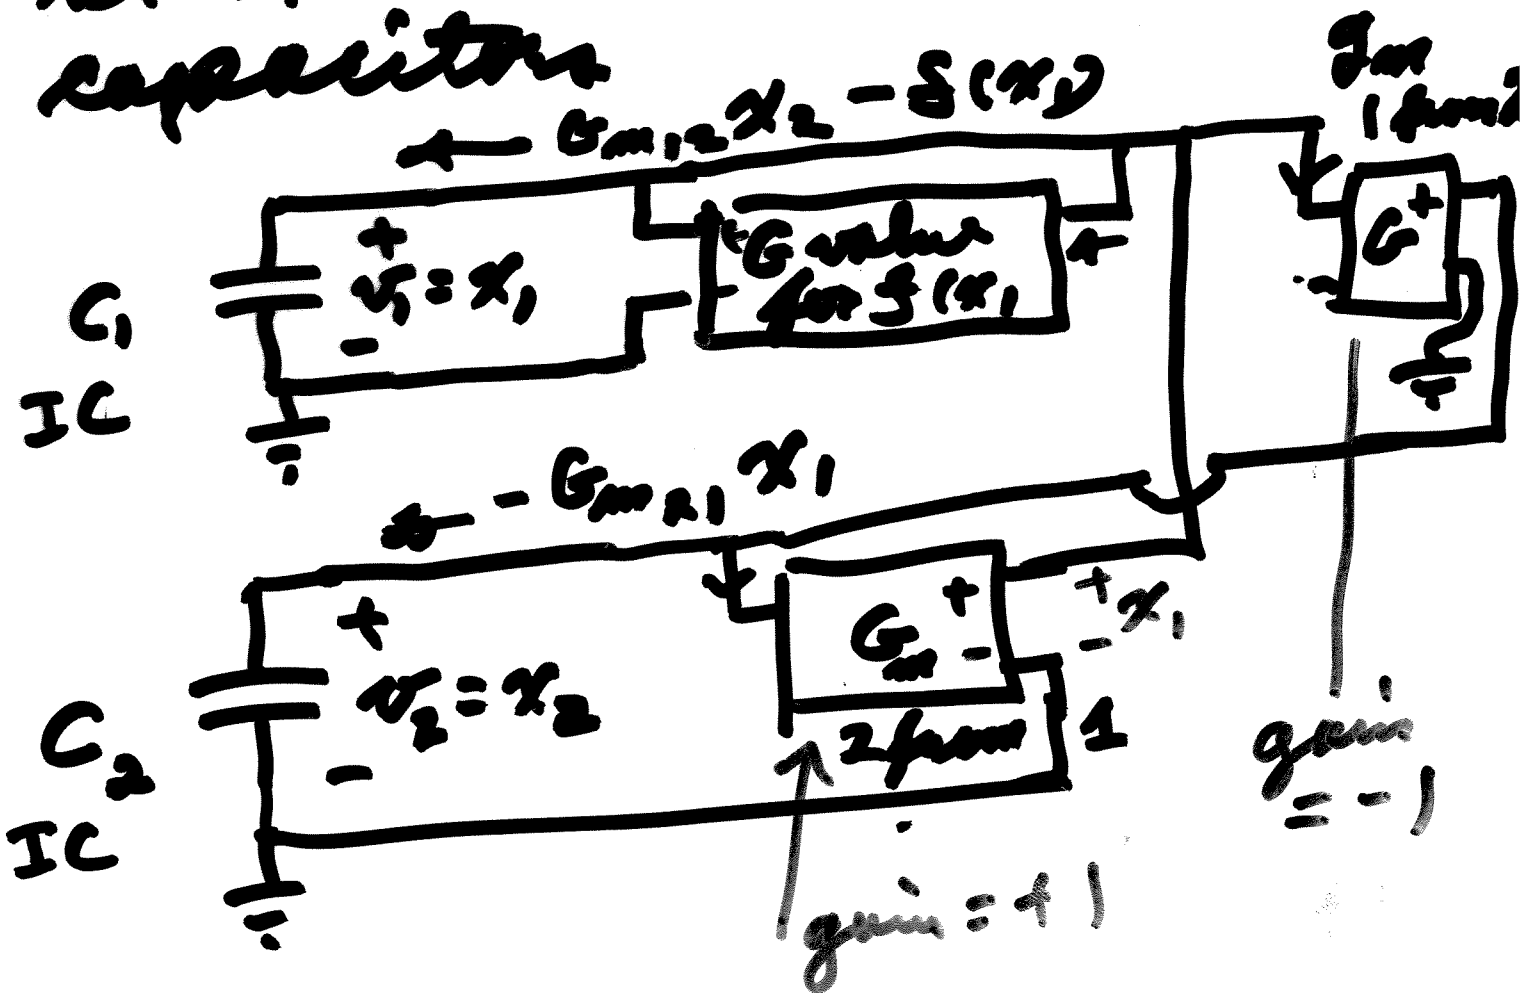 capacitors
← Gm12 x2 - f(x1)
gm
1 from 2
+
v1 = x1
-
C1
IC
+
-
G value
for f(x1
G +
-
← - Gm21 x1
+
v2 = x2
-
C2
IC
Gm + -
2 from 1
+ x1 -
gain
= -1
gain = +1